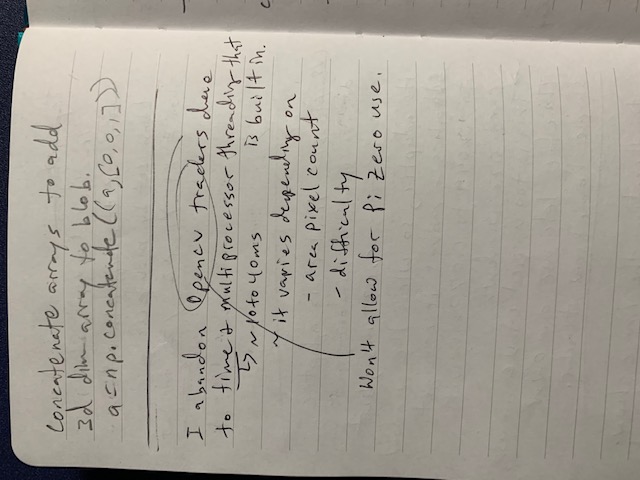 concatenate arrays to add
3d dim array to blob.
a=np.concatenate((a,[0,0,1]))
I abandon Opencv traders due
to time & multiprocessor threading that
is built in.
~10 to 40ms
~ it varies depending on
- area pixel count
- difficulty
Won't allow for Pi Zero use.